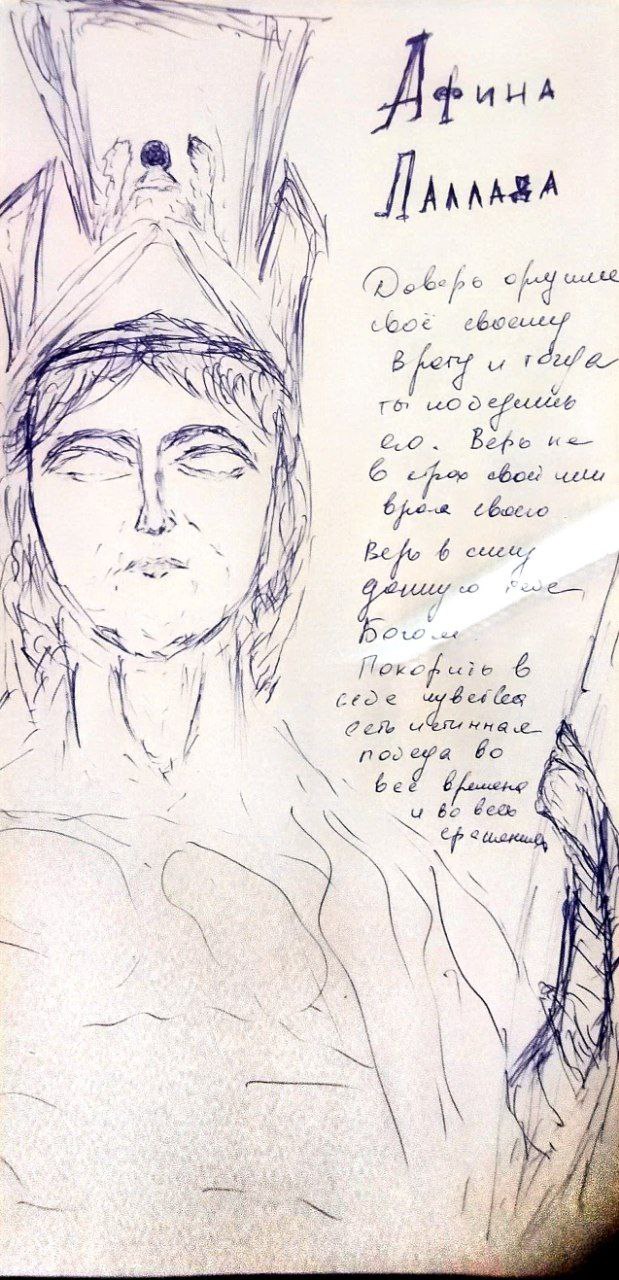 Афина
Паллада
Доверь оружие
своё своему
врагу и тогда
ты победишь
его. Верь не
в страх свой или
врага своего
Верь в силу
данную тебе
Богом
Покорить в
себе чувства
есть истинная
победа во
все времена
и во всех
сражениях